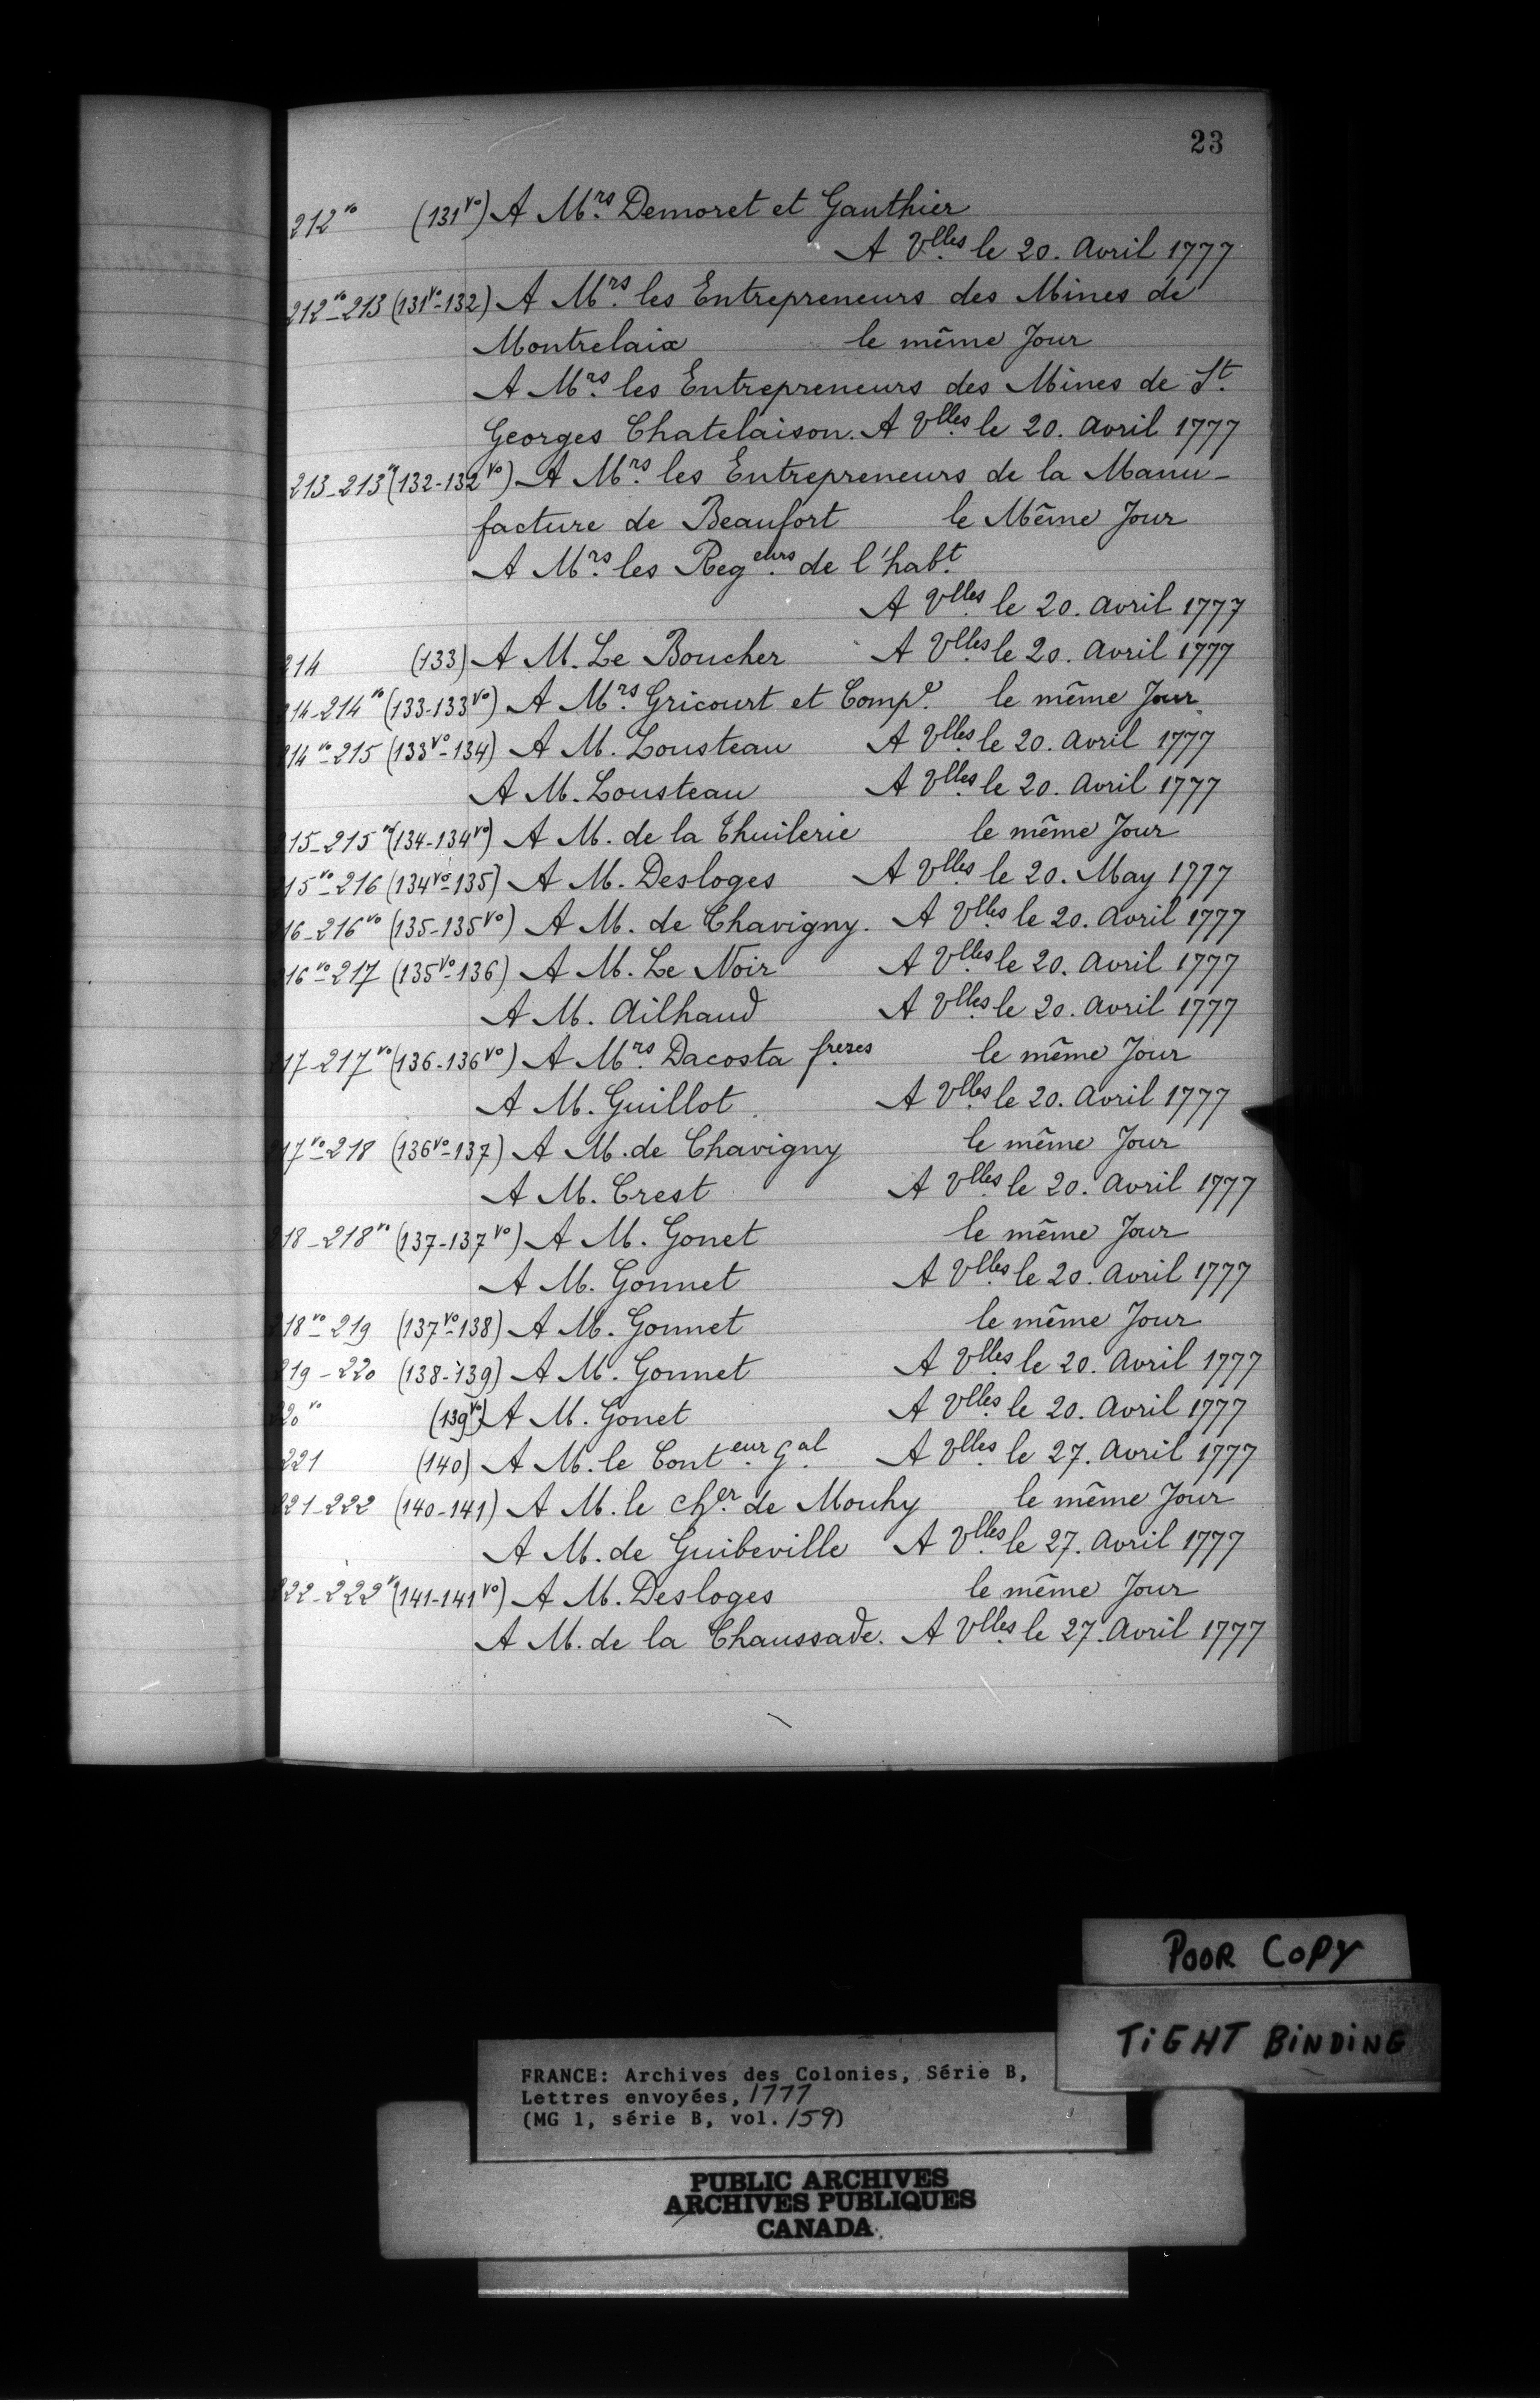 23
212 vo (131 vo) A Mrs. Demoret et Gauthier
A Vlles. le 20. Avril 1777
212 vo-213 (131 vo-132) A Mrs. les Entrepreneurs des Mines de
Montrelaix le même Jour
A Mrs. les Entrepreneurs des Mines de St.
Georges Chatelaison. A Vlles. le 20. Avril 1777
213-213 vo (132-132 vo) A Mrs. les Entrepreneurs de la Manu-
facture de Beaufort le Même Jour
A Mrs. les Regeurs. de l'habt.
A Vlles. le 20. Avril 1777
214 (133) A M. Le Boucher A Vlles. le 20. Avril 1777
14-214 vo (133-133 vo) A Mrs. Gricourt et Compe. le même Jour
14 vo-215 (133 vo-134) A M. Lousteau A Vlles. le 20. Avril 1777
A M. Lousteau A Vlles. le 20. Avril 1777
15-215 vo (134-134 vo) A M. de la Thuilerie le même Jour
15 vo-216 (134 vo-135) A M. Desloges A Vlles. le 20. May 1777
16-216 vo (135-135 vo) A M. de Chavigny. A Vlles. le 20. Avril 1777
16 vo-217 (135 vo-136) A M. Le Noir A Vlles. le 20. Avril 1777
A M. Ailhaud A Vlles. le 20. Avril 1777
17-217 vo (136-136 vo) A Mrs. Dacosta freres le même Jour
A M. Guillot A Vlles. le 20. Avril 1777
17 vo-218 (136 vo-137) A M. de Chavigny le même Jour
A M. Crest A Vlles. le 20. Avril 1777
18-218 vo (137-137 vo) A M. Gonet le même Jour
A M. Gonnet A Vlles. le 20. Avril 1777
18 vo-219 (137 vo-138) A M. Gonnet le même Jour
219-220 (138-139) A M. Gonnet A Vlles. le 20. Avril 1777
20 vo (139 vo) A M. Gonet A Vlles. le 20. Avril 1777
221 (140) A M. le Conteur. Gal. A Vlles. le 27. Avril 1777
221-222 (140-141) A M. le Cher. de Mouhy le même Jour
A M. de Guibeville A Vlles. le 27. Avril 1777
222-222 vo (141-141 vo) A M. Desloges le même Jour
A M. de la Chaussade. A Vlles. le 27. Avril 1777
POOR COPY
TIGHT BINDING
FRANCE: Archives des Colonies, Série B,
Lettres envoyées, 1777
(MG 1, série B, vol. 159)
PUBLIC ARCHIVES
ARCHIVES PUBLIQUES
CANADA